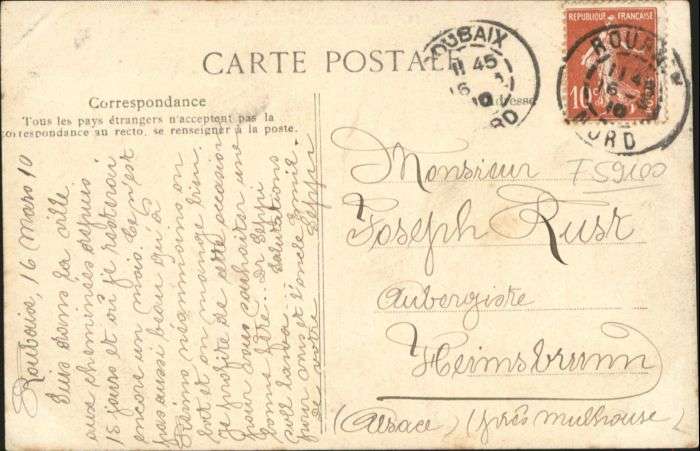 CARTE POSTALE
REPUBLIQUE FRANÇAISE
10c
ROUBAIX
11 45
16
10
NORD
ROUBAIX
11 45
16
10
NORD
Correspondance
Tous les pays étrangers n'acceptent pas la
correspondance au recto, se renseigner à la poste.
Adresse
Roubaix, 16 Mars 10
Suis dans la ville
aux cheminées depuis
15 jours et où je resterai
encore un mois. Ce n'est
pas aussi beau qu'à
néanmoins on
boit et on mange bien.
Je profite de cette occasion
pour vous souhaiter une
bonne fête. Dr Seppi
soll Salutations
pour amis et l'oncle Emile.
de votre Seppi
Monsieur
FS9100
Joseph Rust
Aubergiste
Heimsbrunn
(Alsace) (près Mulhouse)